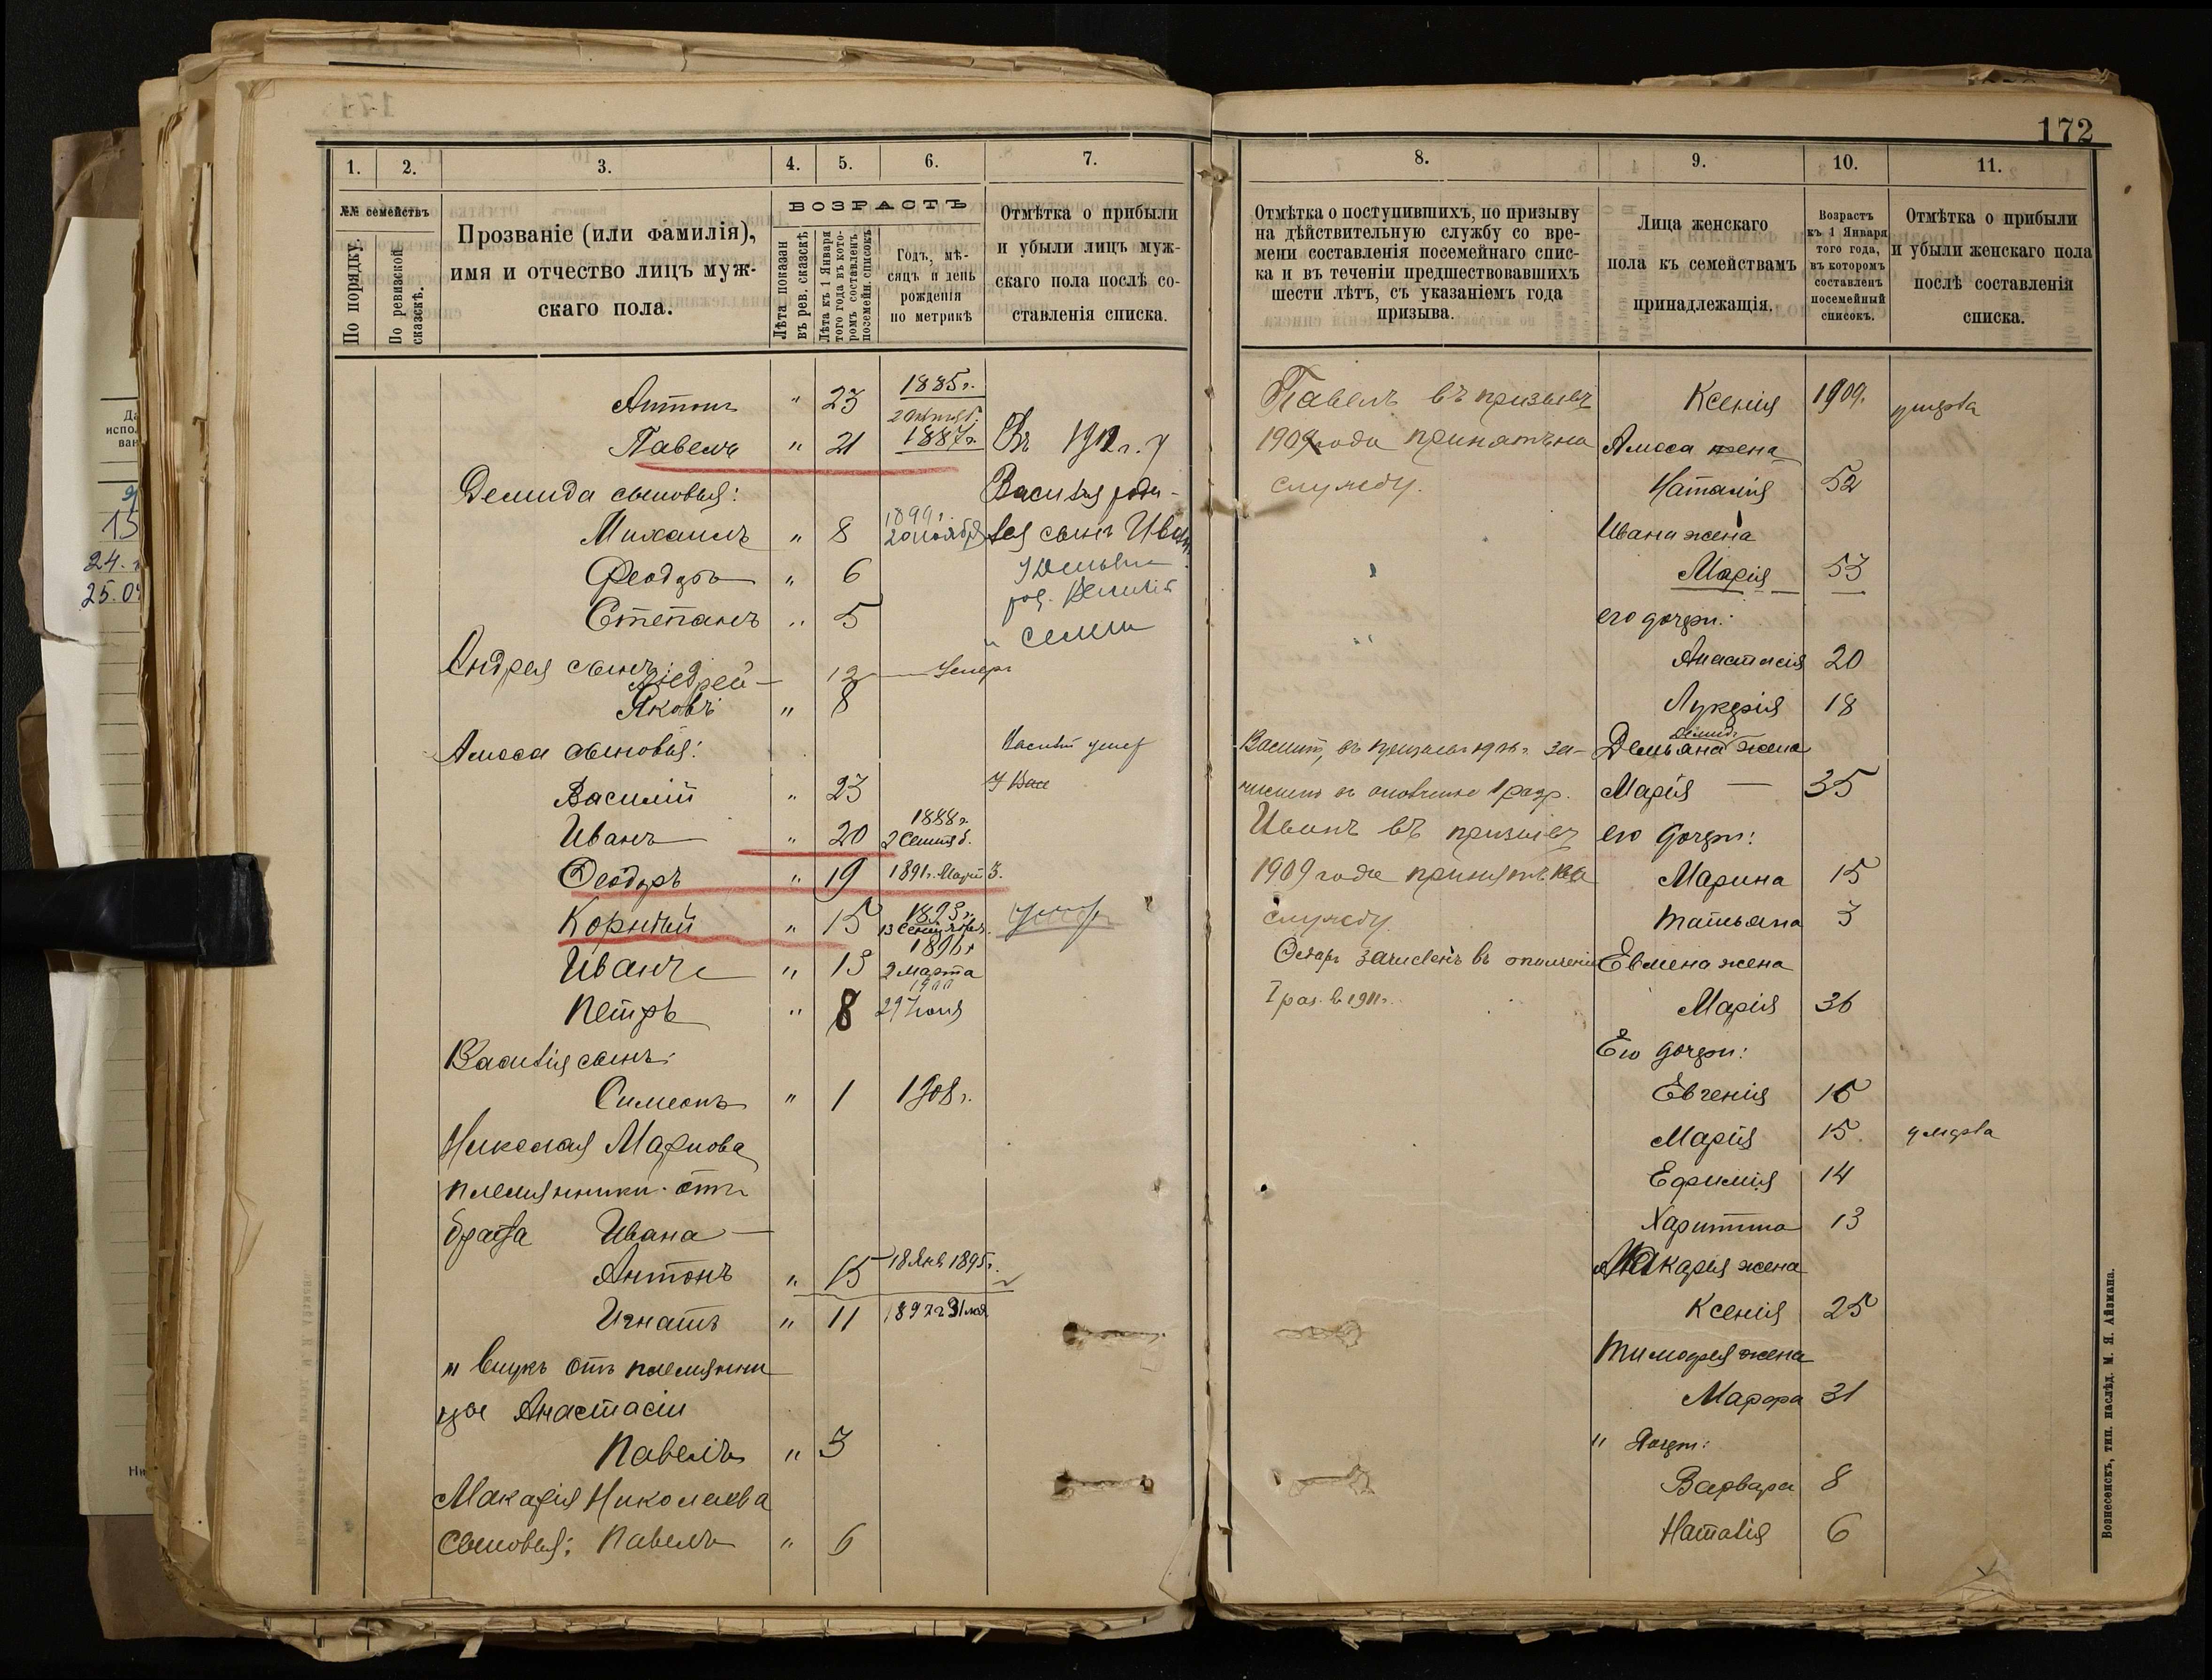 172
1. 2. 3. 4. 5. 6. 7.
№№ семействъ
По порядку.
По ревизской сказкѣ.
Прозваніе (или фамилія),
имя и отчество лицъ муж-
скаго пола.
ВОЗРАСТЪ
Лѣта показан въ рев. сказкѣ
Лѣта къ 1 Января того года въ кото-ромъ составленъ посемейн. списокъ
Годъ, мѣ-
сяцъ и день
рожденія
по метрикѣ
Отмѣтка о прибыли
и убыли лицъ муж-
скаго пола послѣ со-
ставленія списка.
Антонъ " 23 1885г.
Павелъ " 21 1887г. Въ 1912г. у
Демида сыновья: Василія роди-
Михаилъ " 8 1899г. 20 ноября лся сынъ Иванъ
Феодоръ " 6
Степанъ " 5
Андрея сынъ:
Андрей 12 Умеръ
Яковъ " 8
Амоса сыновья: Василій умер
Василій " 23
Иванъ " 20 1888г. 2 Сентяб.
Ѳеодоръ " 19 1891г. Март 3.
Корнѣй " 15 1893г. 13 Сентября
Иванъ " 13 2 марта
Петръ " 8 1900 29 Іюня
Василія сынъ:
Симеонъ " 1 1908г.
Николая Маркова
племянники отъ
брата Ивана
Антонъ " 15 18 Янв 1895г.
Игнатъ " 11 1897г 31 мая
и внукъ отъ племянни
цы Анастасіи
Павелъ " 3
Макарія Николаева
сыновья: Павелъ " 6
8. 9. 10. 11.
Отмѣтка о поступившихъ, по призыву
на дѣйствительную службу со вре-
мени составленія посемейнаго спис-
ка и въ теченіи предшествовавшихъ
шести лѣтъ, съ указаніемъ года
призыва.
Лица женскаго
пола къ семействамъ
принадлежащія.
Возрастъ
къ 1 Января
того года,
въ которомъ
составленъ
посемейный
списокъ.
Отмѣтка о прибыли
и убыли женскаго пола
послѣ составленія
списка.
Павелъ въ призывъ Ксенія 1909. умерла
1909 года принятъ на Амоса жена
службу. Наталія 52
Ивана жена
Марія 53
его дочери:
Анастасія 20
Лукерія 18
Василій, въ призывъ 1906г. за- Демьяна жена
численъ въ ополченіе 1 разр. Марія 35
Иванъ въ призывъ его дочери:
1909 года принятъ на Марина 15
службу. Татьяна 3
Ѳеодоръ зачисленъ въ ополченіе Евмена жена
I раз. въ 1911г. Марія 36
Его дочери:
Евгенія 15
Марія 15. умерла
Ефимія 14
Харитина 13
Макарія жена
Ксенія 25
Тимофея жена
Марфа 31
" Дочери:
Варвара 8
Наталія 6
Вознесенскъ, тип. наслѣд. М. Я. Айзмана.